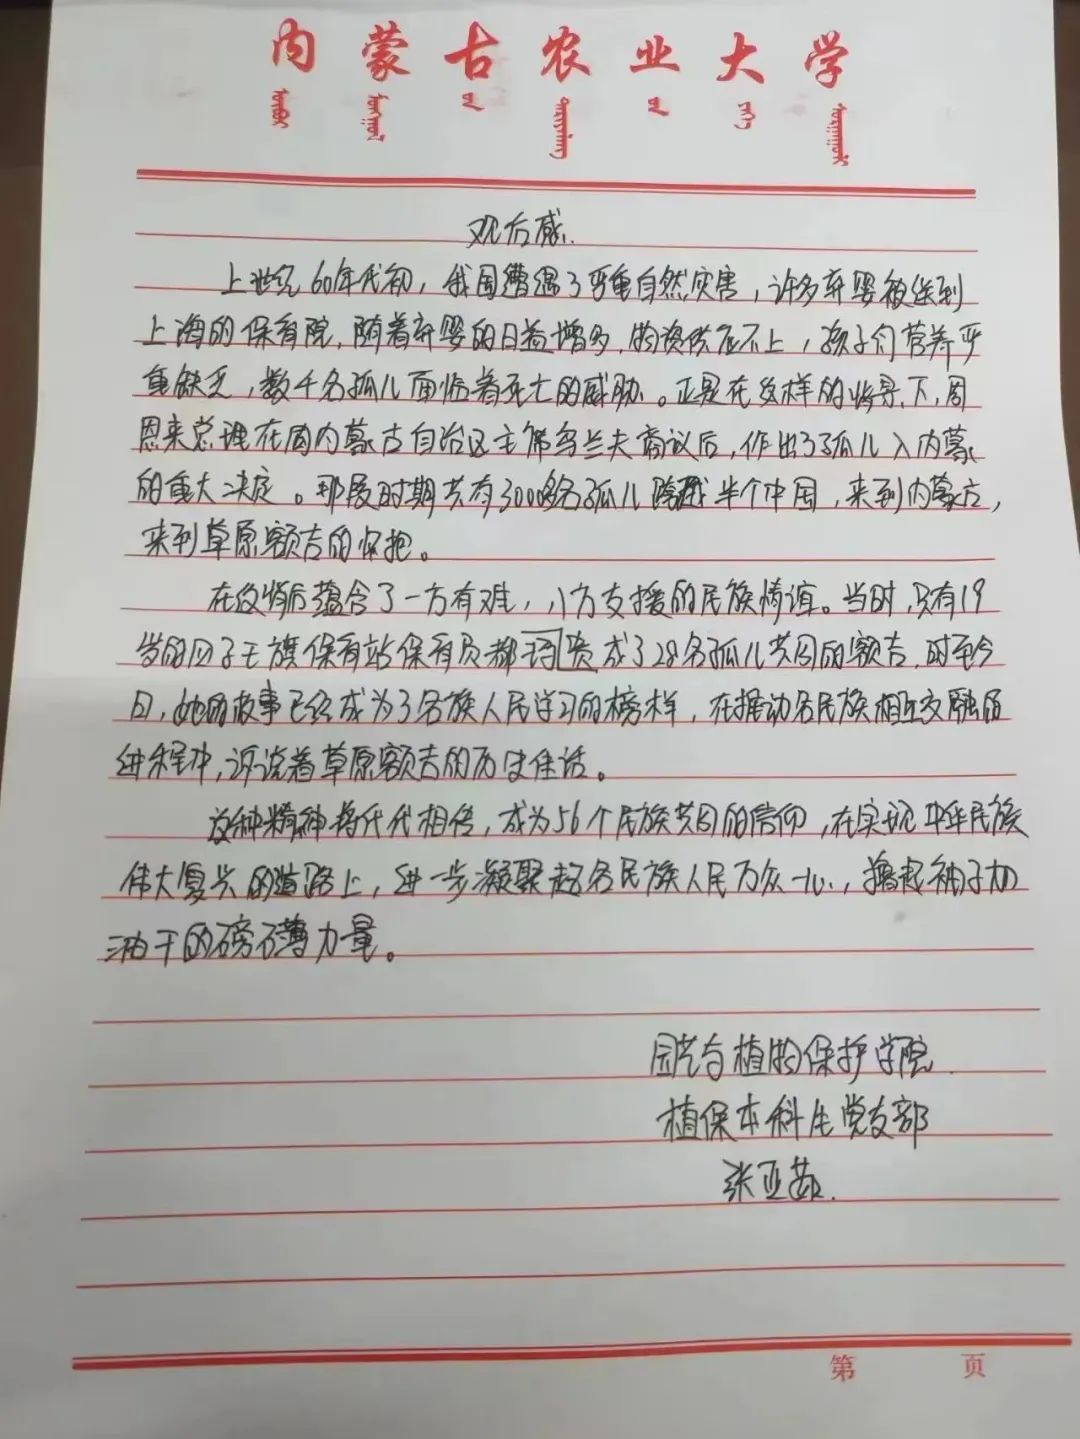 内蒙古农业大学
观后感.
上世纪60年代初，我国遭遇了严重自然灾害，许多弃婴被送到
上海的保育院，随着弃婴的日益增多，物资供应不上，孩子们营养严
重缺乏，数千名孤儿面临着死亡的威胁。正是在这样的背景下，周
恩来总理在同内蒙古自治区主席乌兰夫商议后，作出了孤儿入内蒙
的重大决定。那段时期共有3000多名孤儿跨越半个中国，来到内蒙古，
来到草原额吉的怀抱。
在这背后蕴含了一方有难，八方支援的民族情谊。当时，只有19
岁的四子王旗保育站保育员都贵成了28名孤儿共同的额吉，时至今
日，她的故事已经成为了各族人民学习的榜样，在推动各民族相互交融的
进程中，诉说着草原额吉的历史佳话。
这种精神将代代相传，成为56个民族共同的信仰，在实现中华民族
伟大复兴的道路上，进一步凝聚起各民族人民万众一心，撸起袖子加
油干的磅礴力量。
园艺与植物保护学院.
植保本科生党支部
张亚茹.
第 页